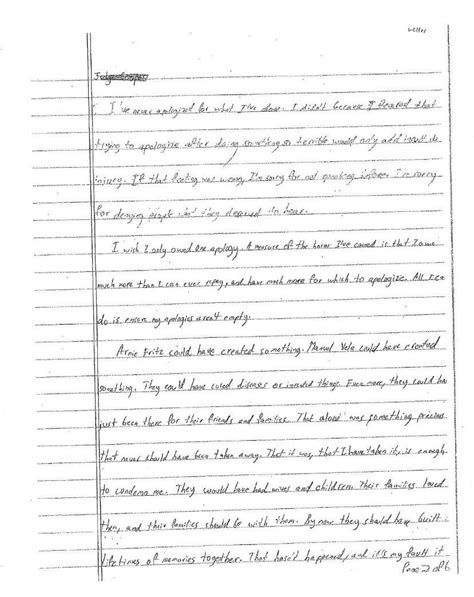 I've never apologized for what I've done. I didn't because I feared that
trying to apologize after doing something so terrible would only add insult to
injury. If that feeling was wrong, I'm sorry for not speaking before. I'm sorry
for denying people what they deserved to hear.
I wish I only owed one apology. A measure of the horror I've caused is that I owe
much more than I can ever repay, and have much more for which to apologize. All I can
do is ensure my apologies aren't empty.
Arnie Fritz could have created something. Manuel Vela could have created
something. They could have cured diseases or invented things. Even more, they could have
just been there for their friends and families. That alone was something precious
that never should have been taken away. That it was, that I have taken it, is enough
to condemn me. They would have had wives and children. Their families loved
them, and their families should be with them. By now they should have built
lifetimes of memories together. That hasn't happened, and it's my fault it
Page 2 of 6